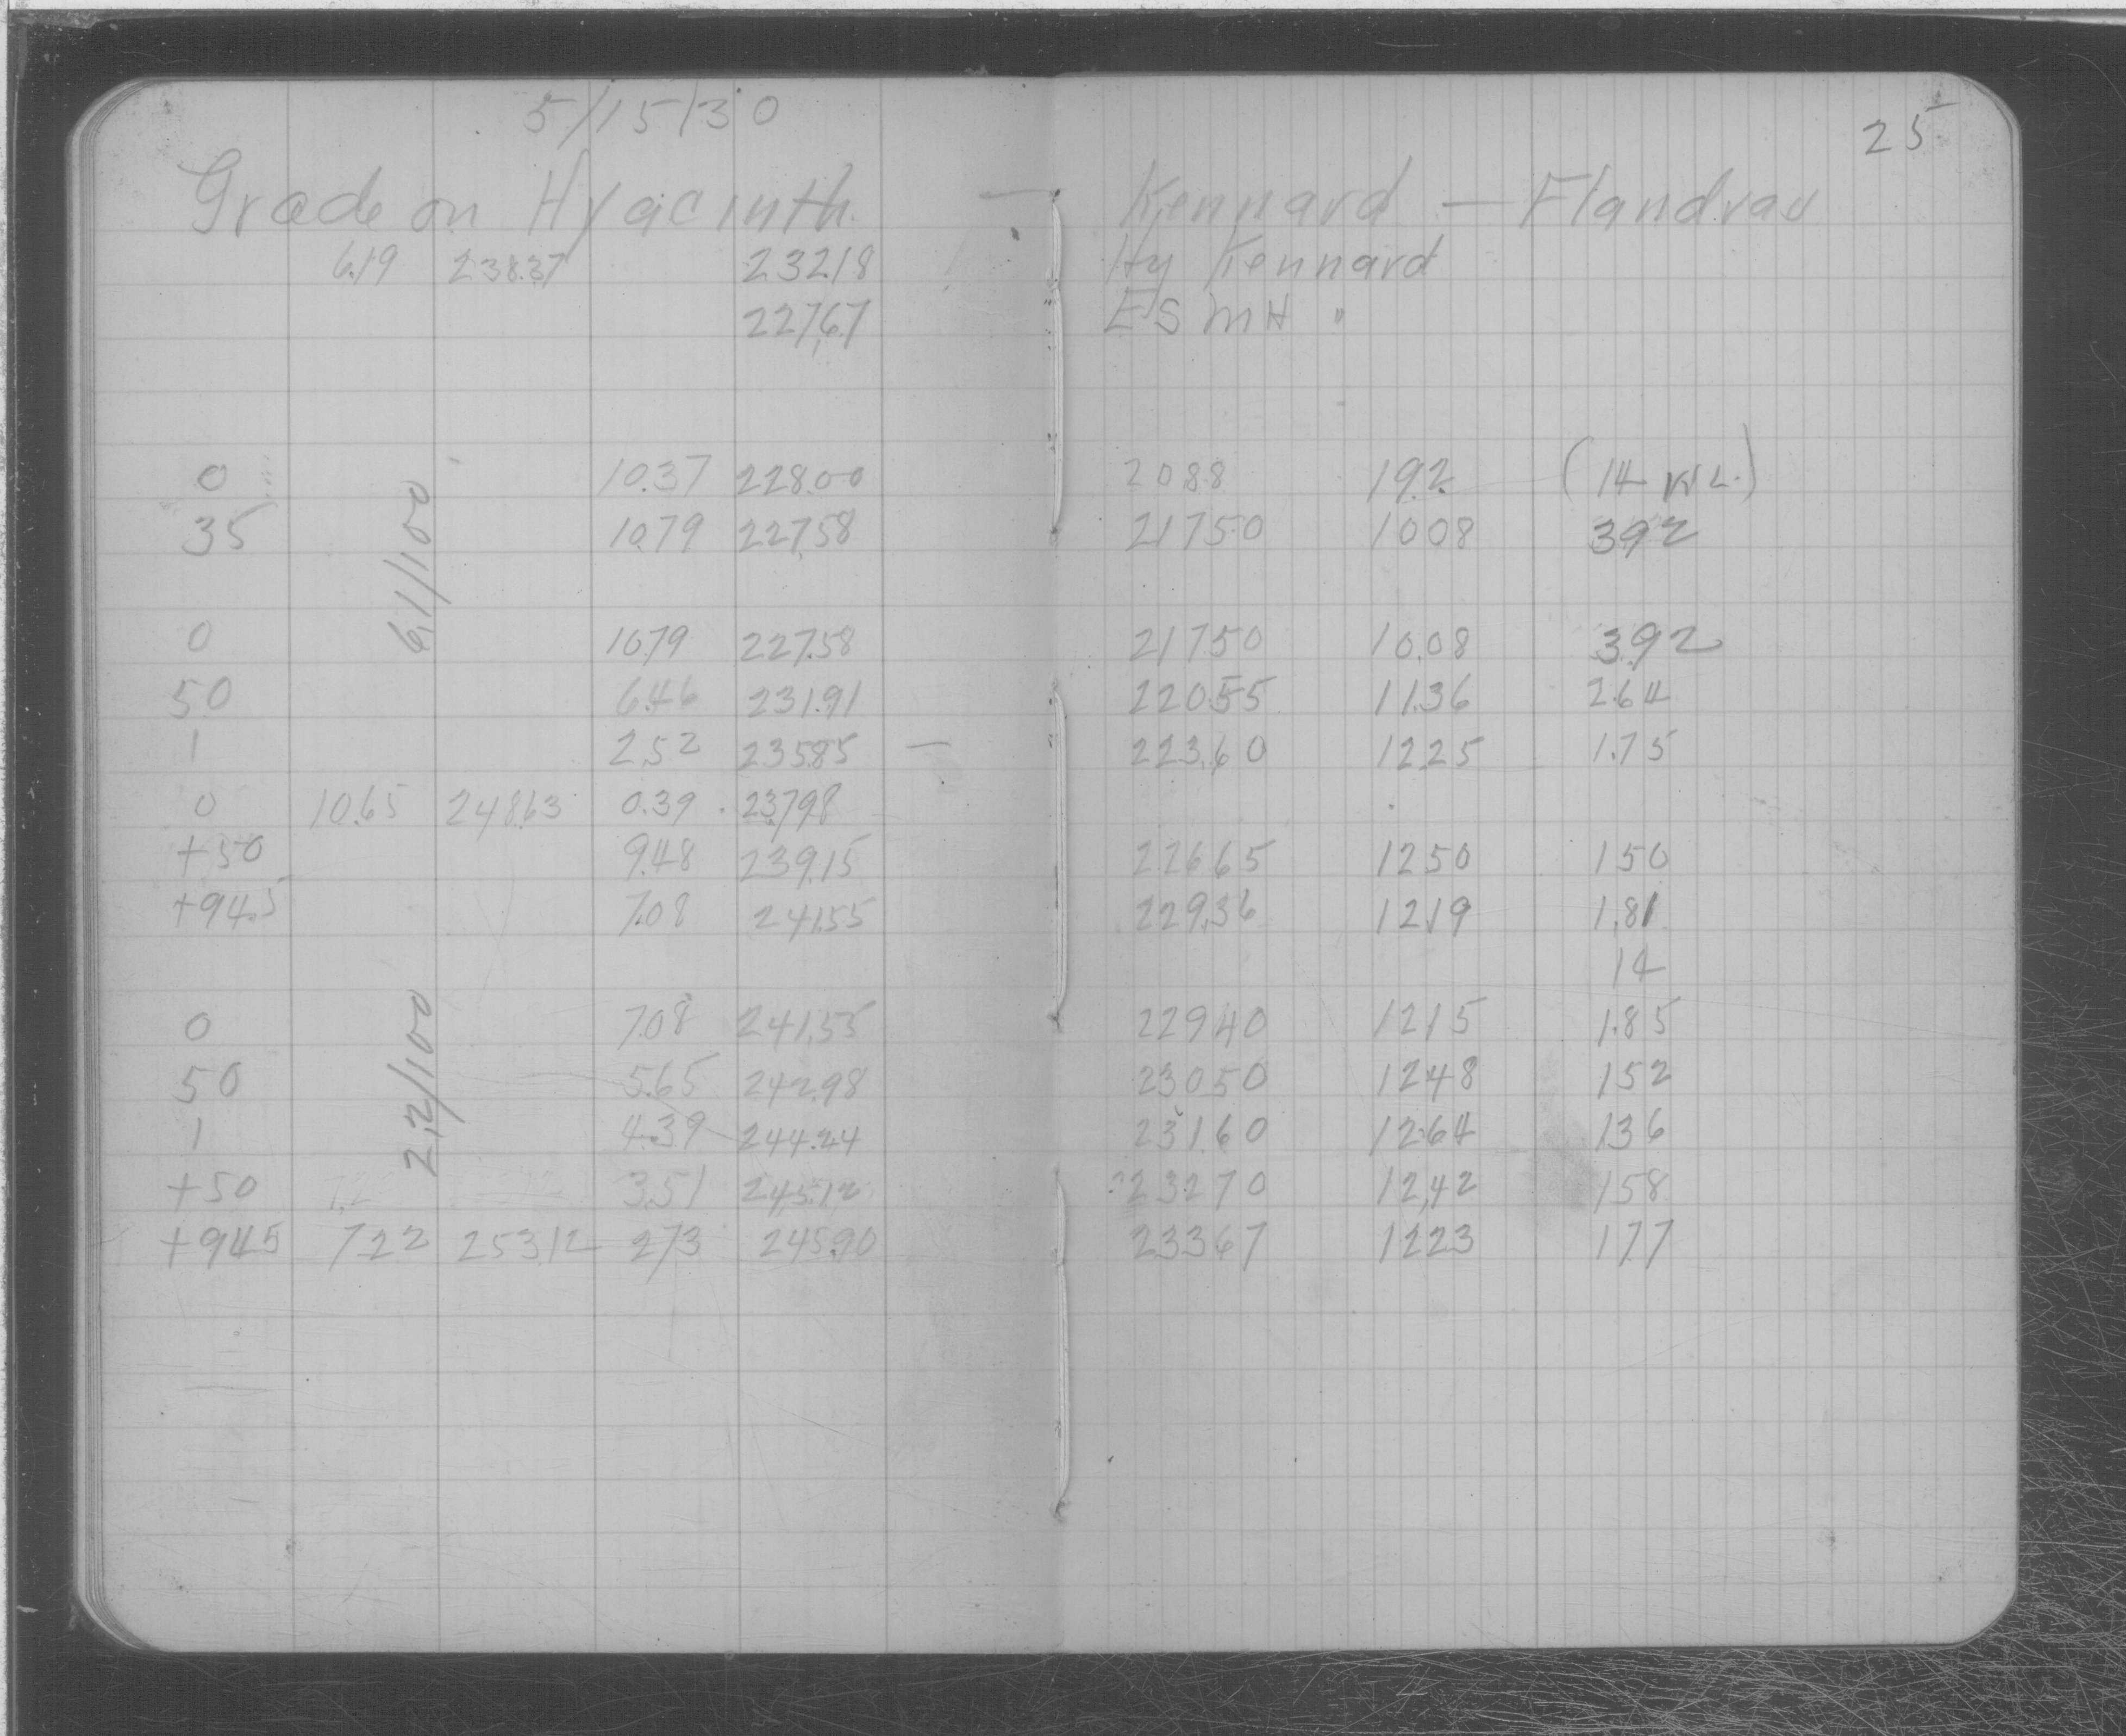 5/15/30
25
Grade on Hyacinth — Kennard — Flandrau
6.19 238.37 232.18 Hy Kennard
227.67 ES MH "
0 10.37 228.00 208.8 19.2 (14 W.L.)
35 10.79 227.58 217.50 10.08 3.92
6.1/100
0 10.79 227.58 217.50 10.08 3.92
50 6.46 231.91 220.55 11.36 2.64
1 2.52 235.85 — 223.60 12.25 1.75
0 10.65 248.63 0.39 237.98
+50 9.48 239.15 226.65 12.50 1.50
+94.5 7.08 241.55 229.36 12.19 1.81
14
0 7.08 241.55 229.40 12.15 1.85
50 5.65 242.98 230.50 12.48 1.52
2.2/100
1 4.39 244.24 231.60 12.64 1.36
+50 3.51 245.12 232.70 12.42 1.58
+94.5 7.22 253.12 2.73 245.90 233.67 12.23 1.77